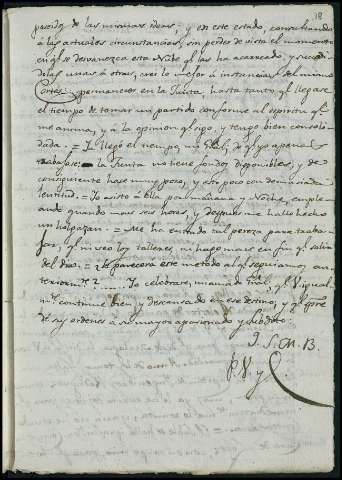 18
de las mismas ideas, y en este estado,
á las actuales circunstancias, sin perder de vista el momento
en q.e se desvanezca esta Nube q.e las ha acarreado y
de las unas á otras, creí lo mejor á instancias del mismo
Cortes permanecer en la Junta, hasta tanto q.e llegase
el tiempo de tomar un partido conforme al espiritu q.e
me anima, y á la opinion q.e sigo y tengo bien consoli
dada. = llegó el tiempo, mi de q.e yo apenas
trabaje; la Junta no tiene fondos disponibles, y de
consiguiente hace muy poco, y esto poco con demasiada
lentitud. = Yo asisto á ella por mañana y Noche, emple
ando quando mas seis horas, y despues me hallo hecho
un holgazan. = Me ha entrado tal pereza para traba-
jar, q.e ni veo los talleres, ni hago mas en fin q.e salir
del dia. = ¿Le parecerá este metodo al q.e seguiamos an-
teriorm.te? ..... Yo celebraré, mi amado q.e V. igual
m.te continue bien y descansado en ese destino, y q.e
de sus ordenes á su mayor apasionado y Subdito.
Q. S. M. B.
P. V. y C.